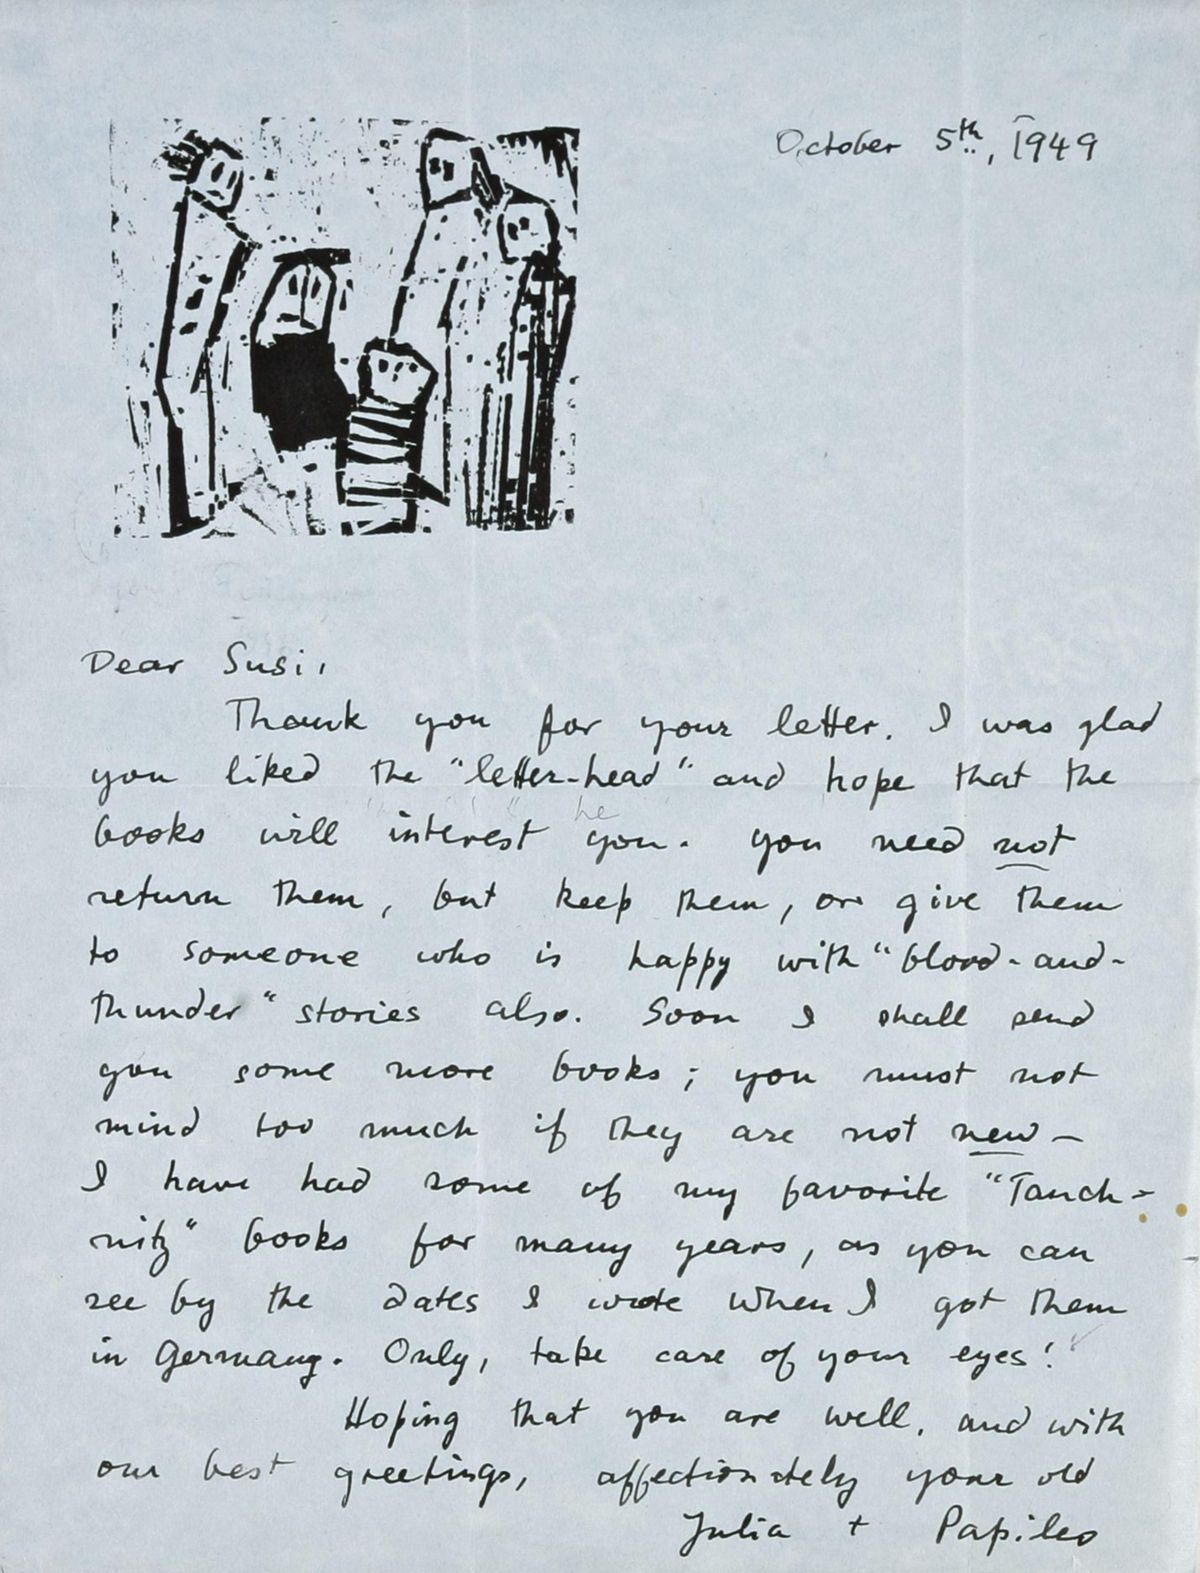 October 5th, 1949
Dear Susi,
Thank you for your letter. I was glad
you liked the "letter-head" and hope that the
books will interest you. you need not
return them, but keep them, or give them
to someone who is happy with "blood-and-
thunder" stories also. Soon I shall send
you some more books; you must not
mind too much if they are not new –
I have had some of my favorite "Tauch-
nitz" books for many years, as you can
see by the dates I wrote when I got them
in Germany. Only, take care of your eyes!
Hoping that you are well, and with
our best greetings, affectionately your old
Julia + Papileo